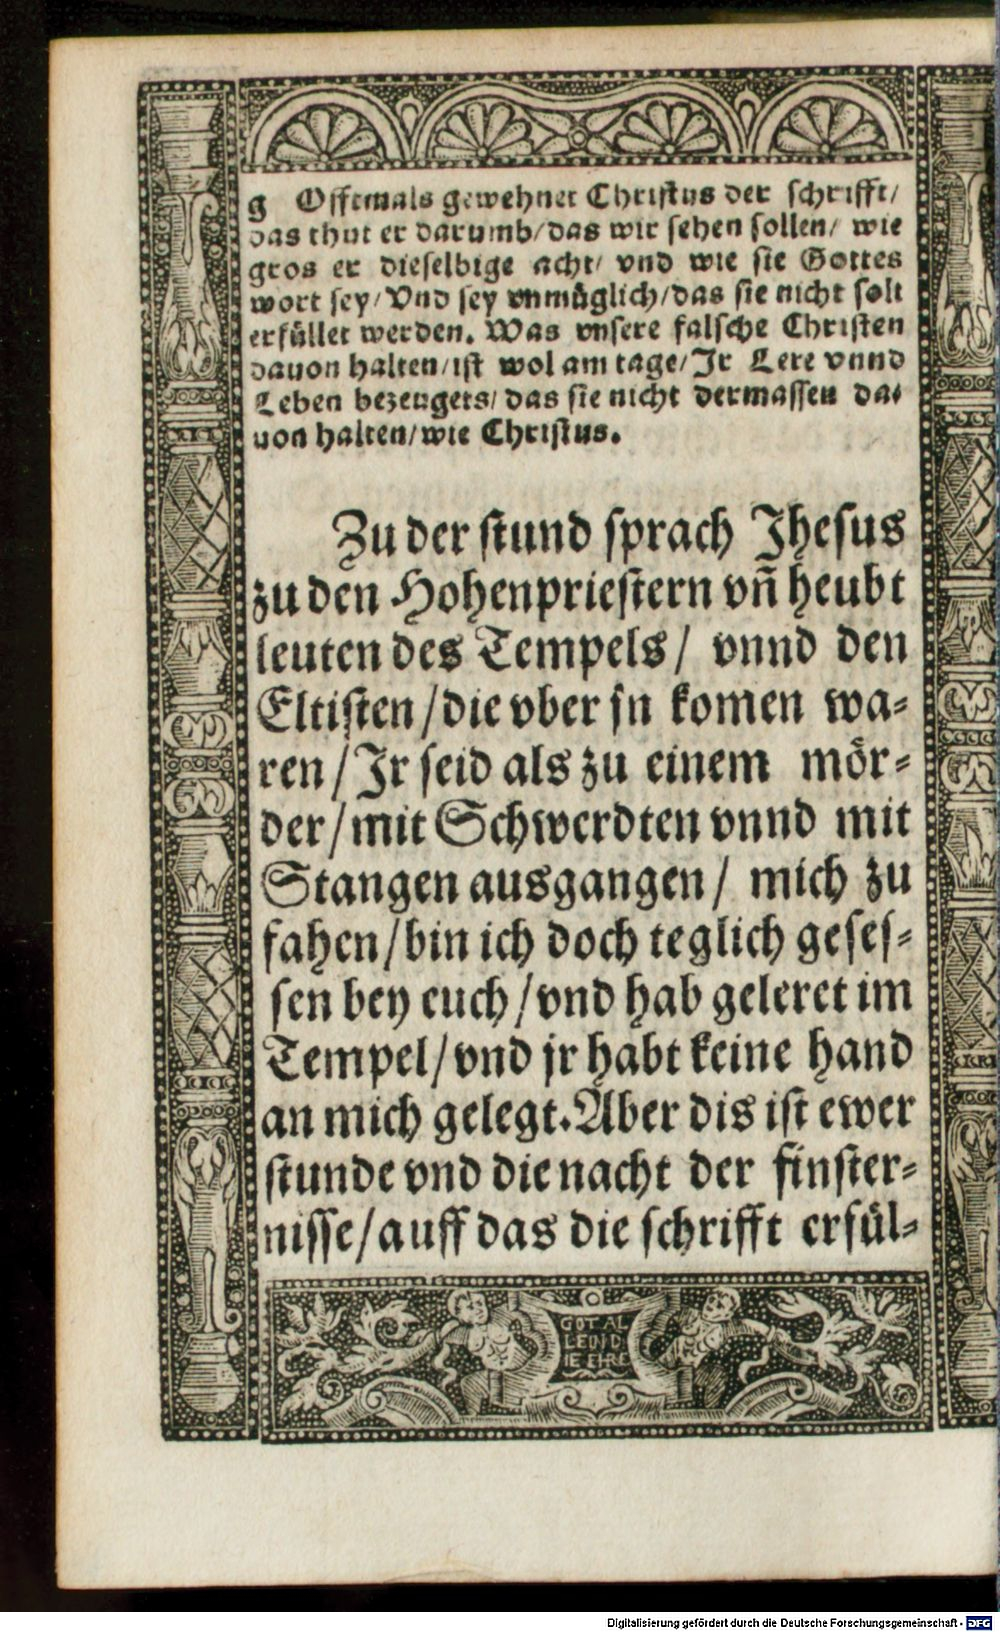 g Offtmals gewehnet Christus der schrifft/
das thut er darumb/das wir sehen sollen/ wie
gros er dieselbige acht/ vnd wie sie Gottes
wort sey/Vnd sey vnmüglich/das sie nicht solt
erfüllet werden. Was vnsere falsche Christen
dauon halten/ist wol am tage/Jr Lere vnnd
Leben bezeugets/das sie nicht dermassen da-
uon halten/wie Christus.
Zu der stund sprach Jhesus
zu den Hohenpriestern vñ heubt
leuten des Tempels/ vnnd den
Eltisten/die vber jn komen wa-
ren/Jr seid als zu einem mör-
der/mit Schwerdten vnnd mit
Stangen ausgangen/ mich zu
fahen/bin ich doch teglich geses-
sen bey euch/vnd hab geleret im
Tempel/vnd jr habt keine hand
an mich gelegt.Aber dis ist ewer
stunde vnd die nacht der finster-
nisse/auff das die schrifft erfül-
GOT AL
LEIN D
IE EHRE
Digitalisierung gefördert durch die Deutsche Forschungsgemeinschaft - DFG